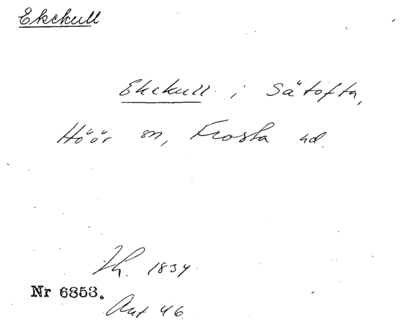 Ekekull
Ekekull i Sätofta,
Höör sn, Frosta hd.
Jh. 1834
Nr 6853.
Ant 46